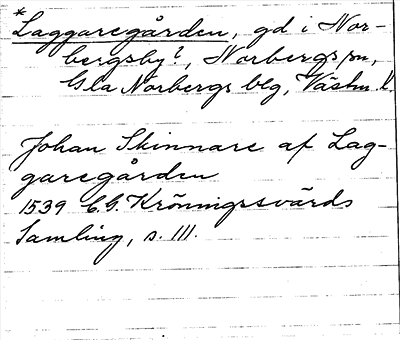 *Laggaregården, gd i Nor-
bergsby?, Norbergs sn,
Gla Norbergs blg, Västm. l.
Johan Skinnare af Lag-
garegården
1539 C.G. Krönningssvärds
Samling, s. 111.